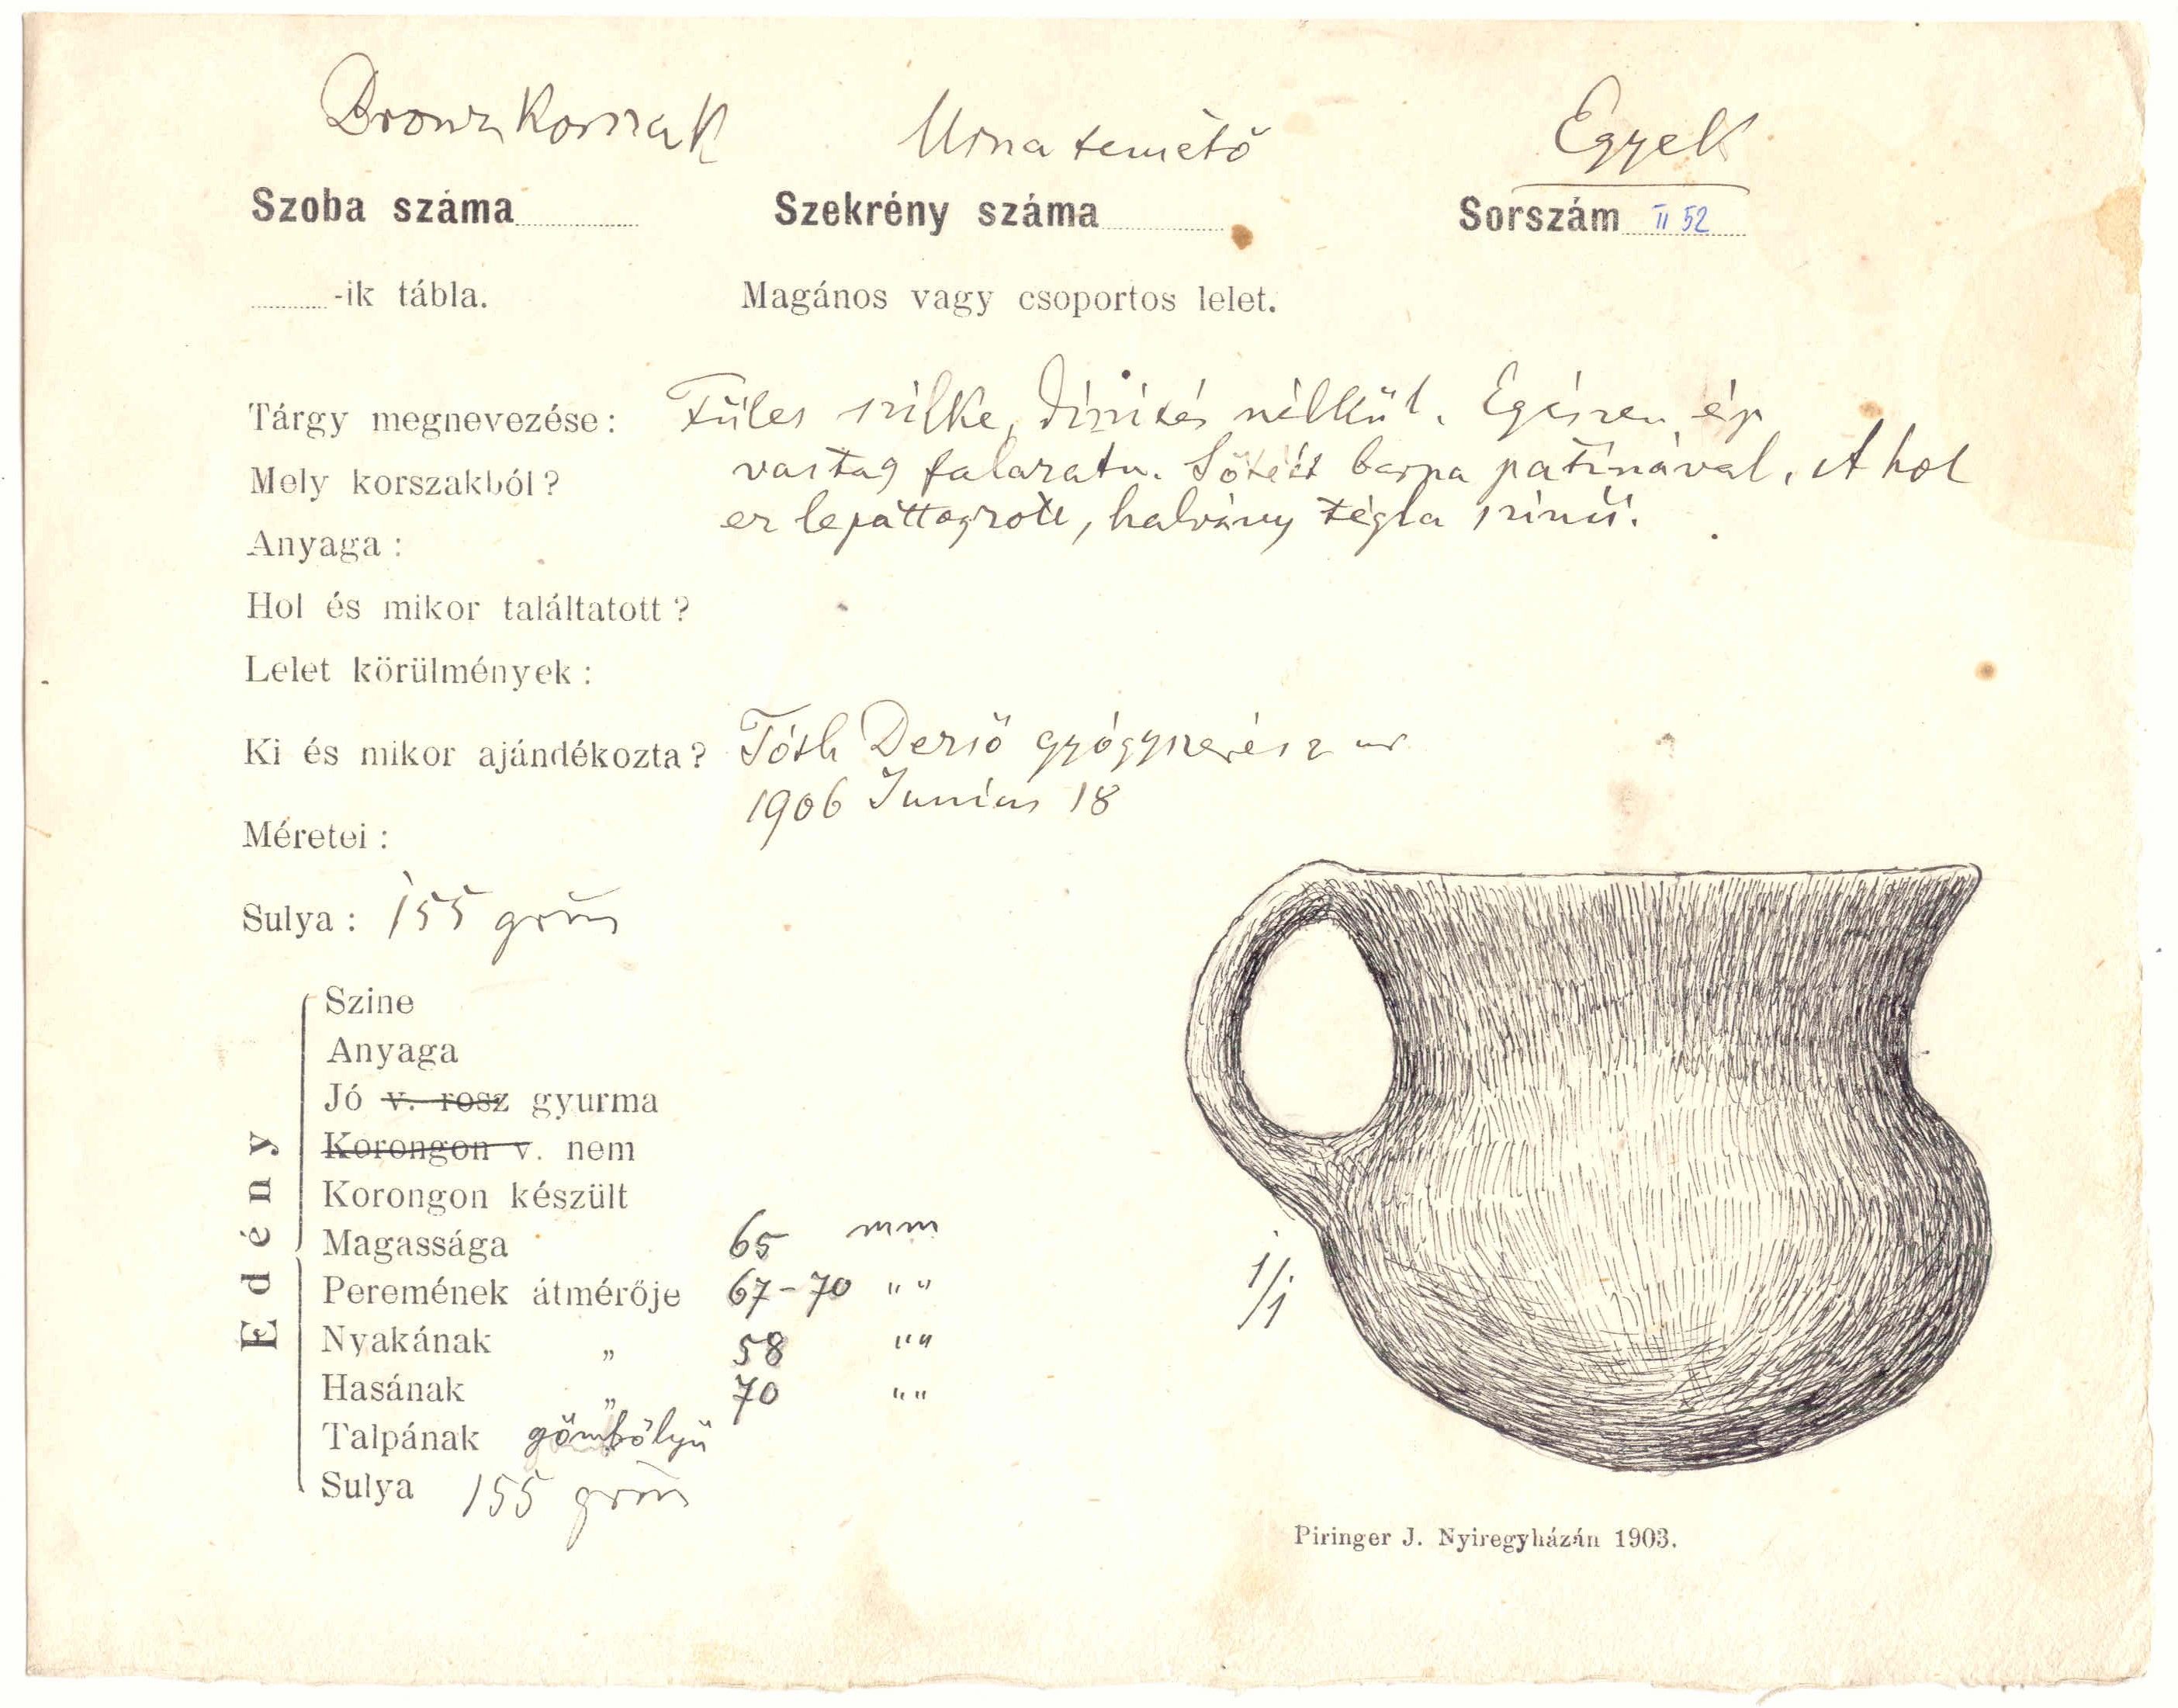 Bronzkorszak Urnatemető Egyek
Szoba száma Szekrény száma Sorszám II 52
-ik tábla. Magános vagy csoportos lelet.
Tárgy megnevezése: Füles szilke, díszítés nélkül. Egészen ép
Mely korszakból? vastag falazatu. Sötét barna patinával. A hol
ez lepattogzott, halvány tégla szinű.
Anyaga:
Hol és mikor találtatott?
Lelet körülmények:
Ki és mikor ajándékozta? Tóth Dezső gyógyszerész ur
1906 Junius 18
Méretei:
Sulya: 155 grm
Edény
Szine
Anyaga
Jó v. rosz gyurma
Korongon v. nem
Korongon készült
Magassága 65 mm
Peremének átmérője 67-70 " "
Nyakának „ 58 " "
Hasának „ 70 " "
Talpának gömbölyű
Sulya 155 grm
1/1
Piringer J. Nyiregyházán 1903.